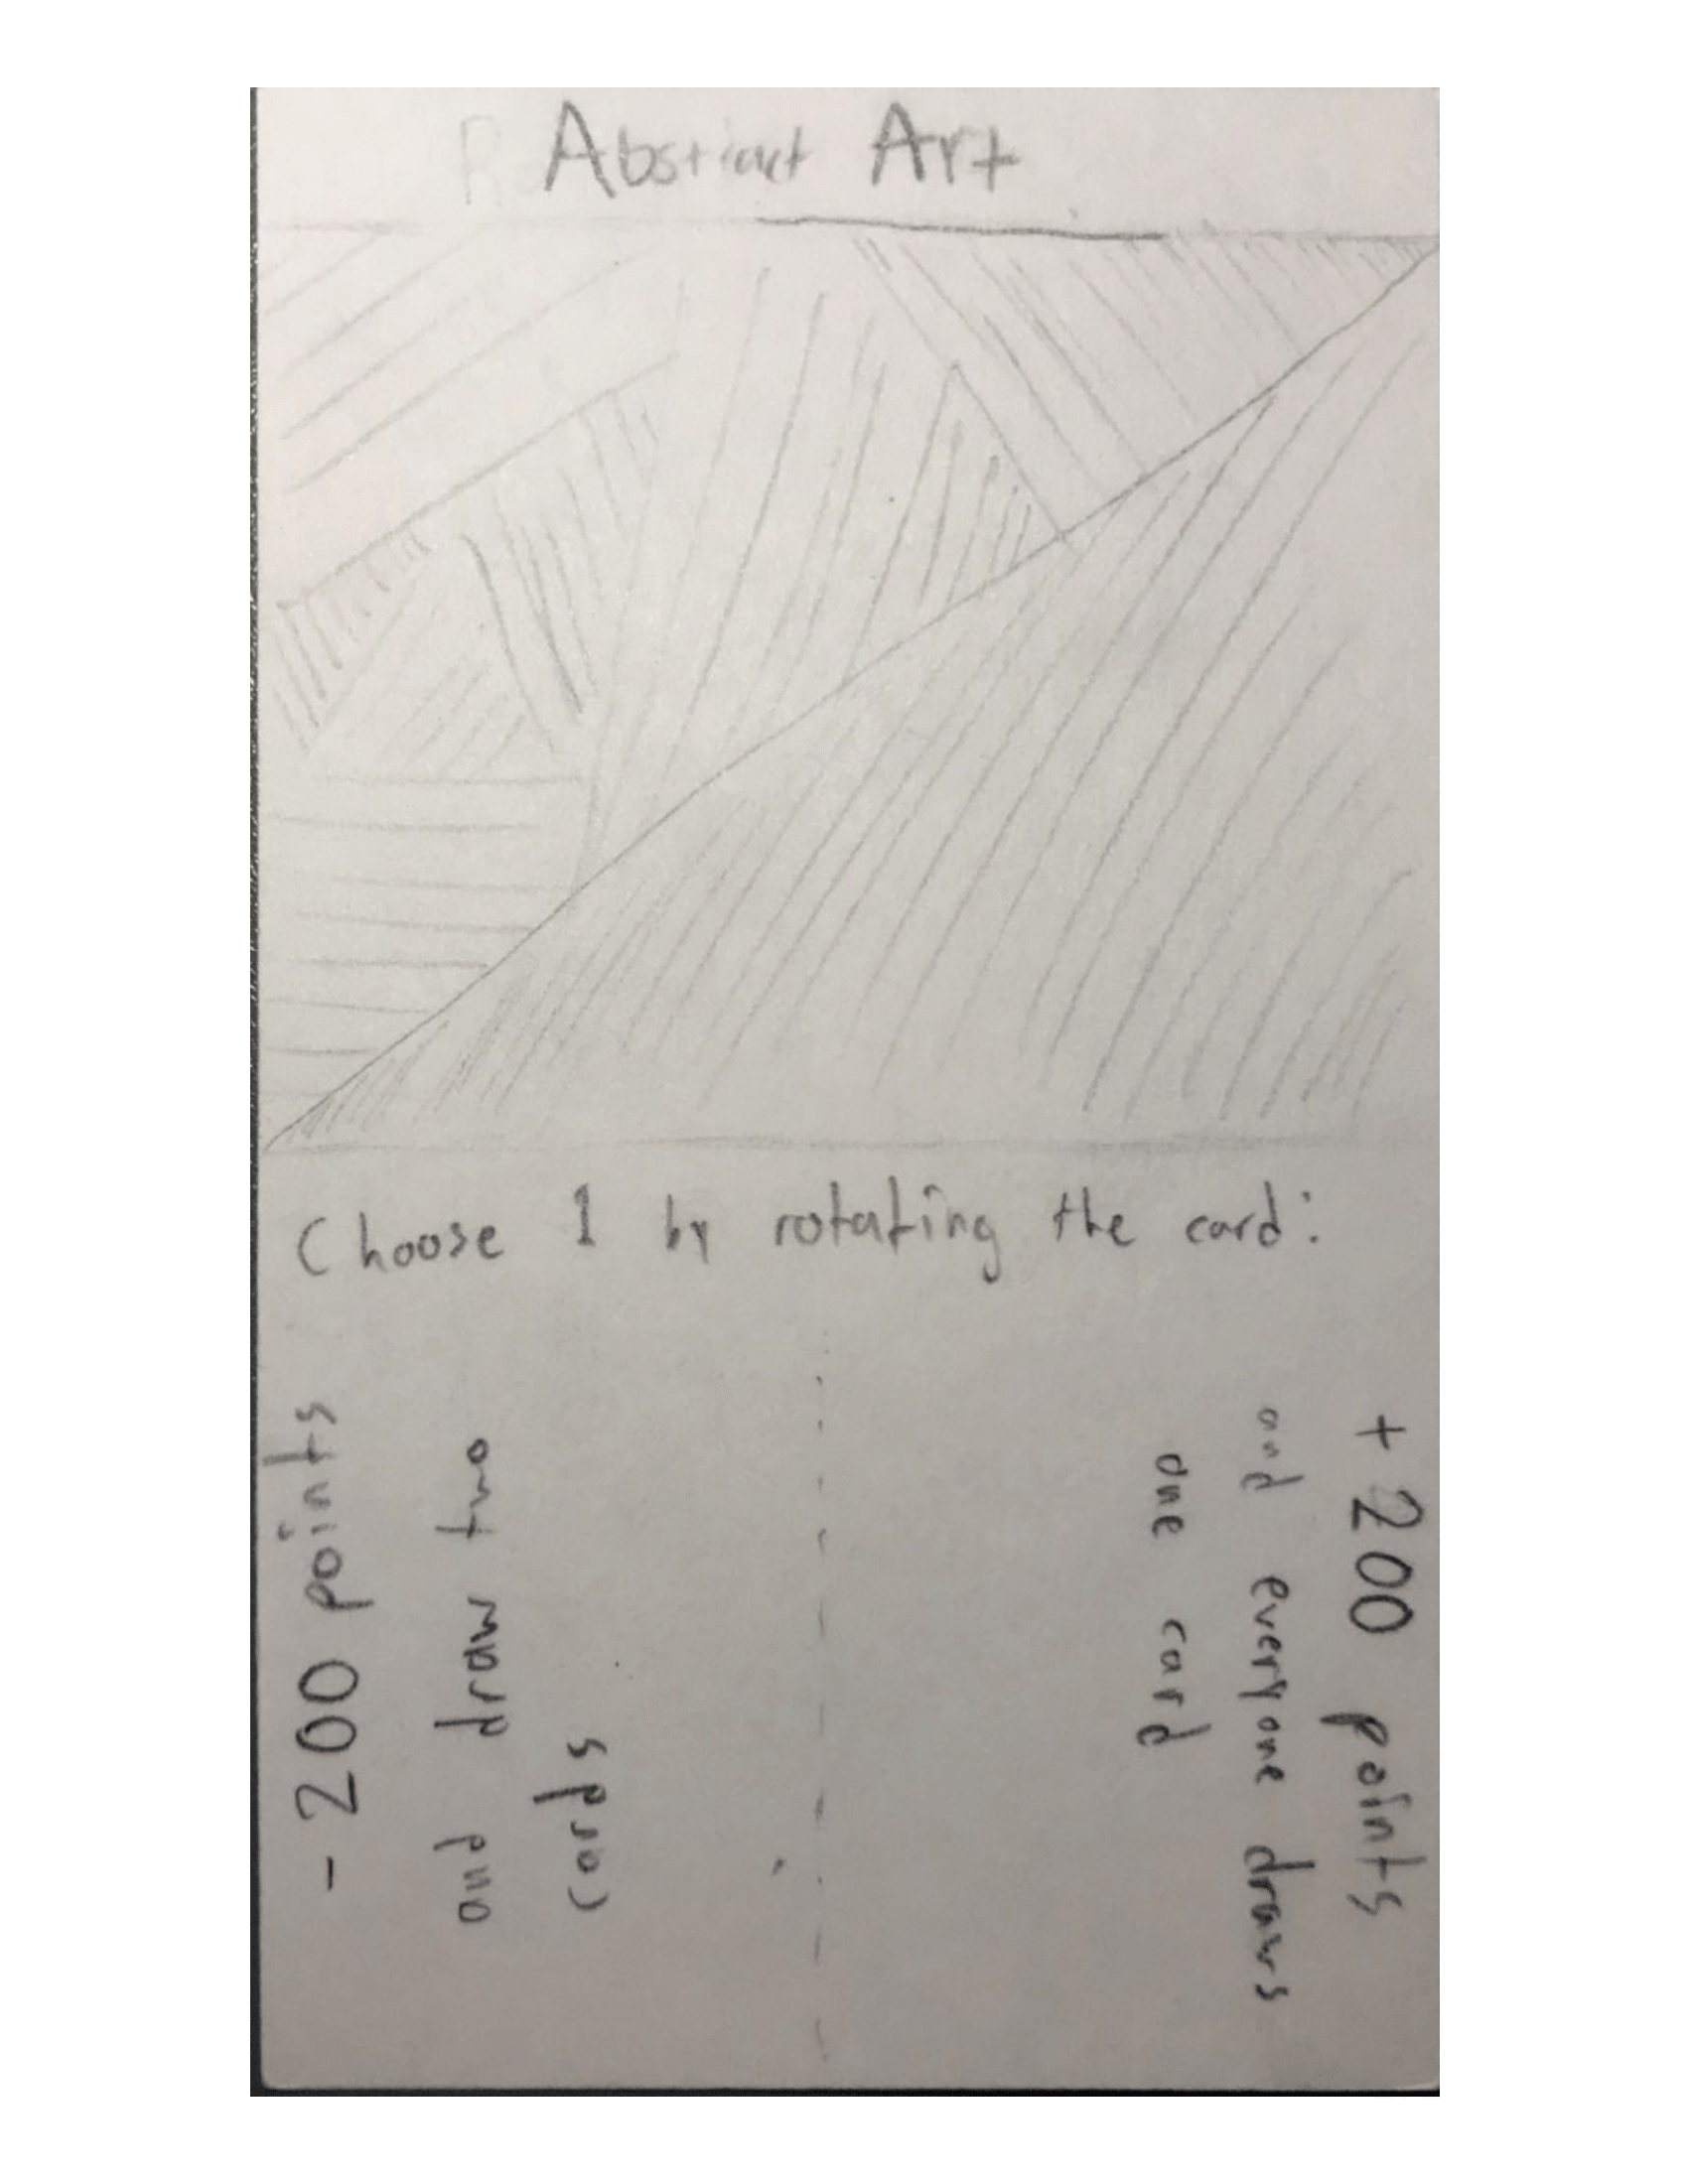 Abstract Art
Choose 1 by rotating the card:
- 200 points
and draw two
cards
+ 200 points
and everyone draws
one card